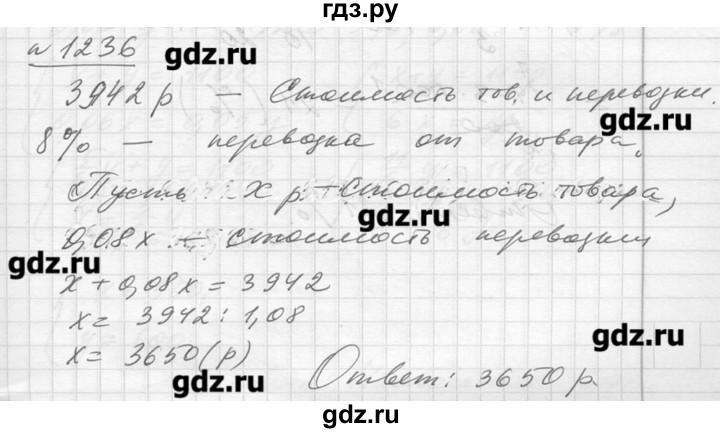 гдз.ру
№ 1236
gdz.ru
3942 р — Стоимость тов. и перевозки.
gdz.ru
8% — перевозка от товара
Пусть х р — стоимость товара,
gdz.ru
0,08х — стоимость перевозки
gdz.ru
х + 0,08х = 3942
х = 3942 : 1,08
gdz.ru
х = 3650 (р)
gdz.ru
Ответ: 3650 р
gdz.ru